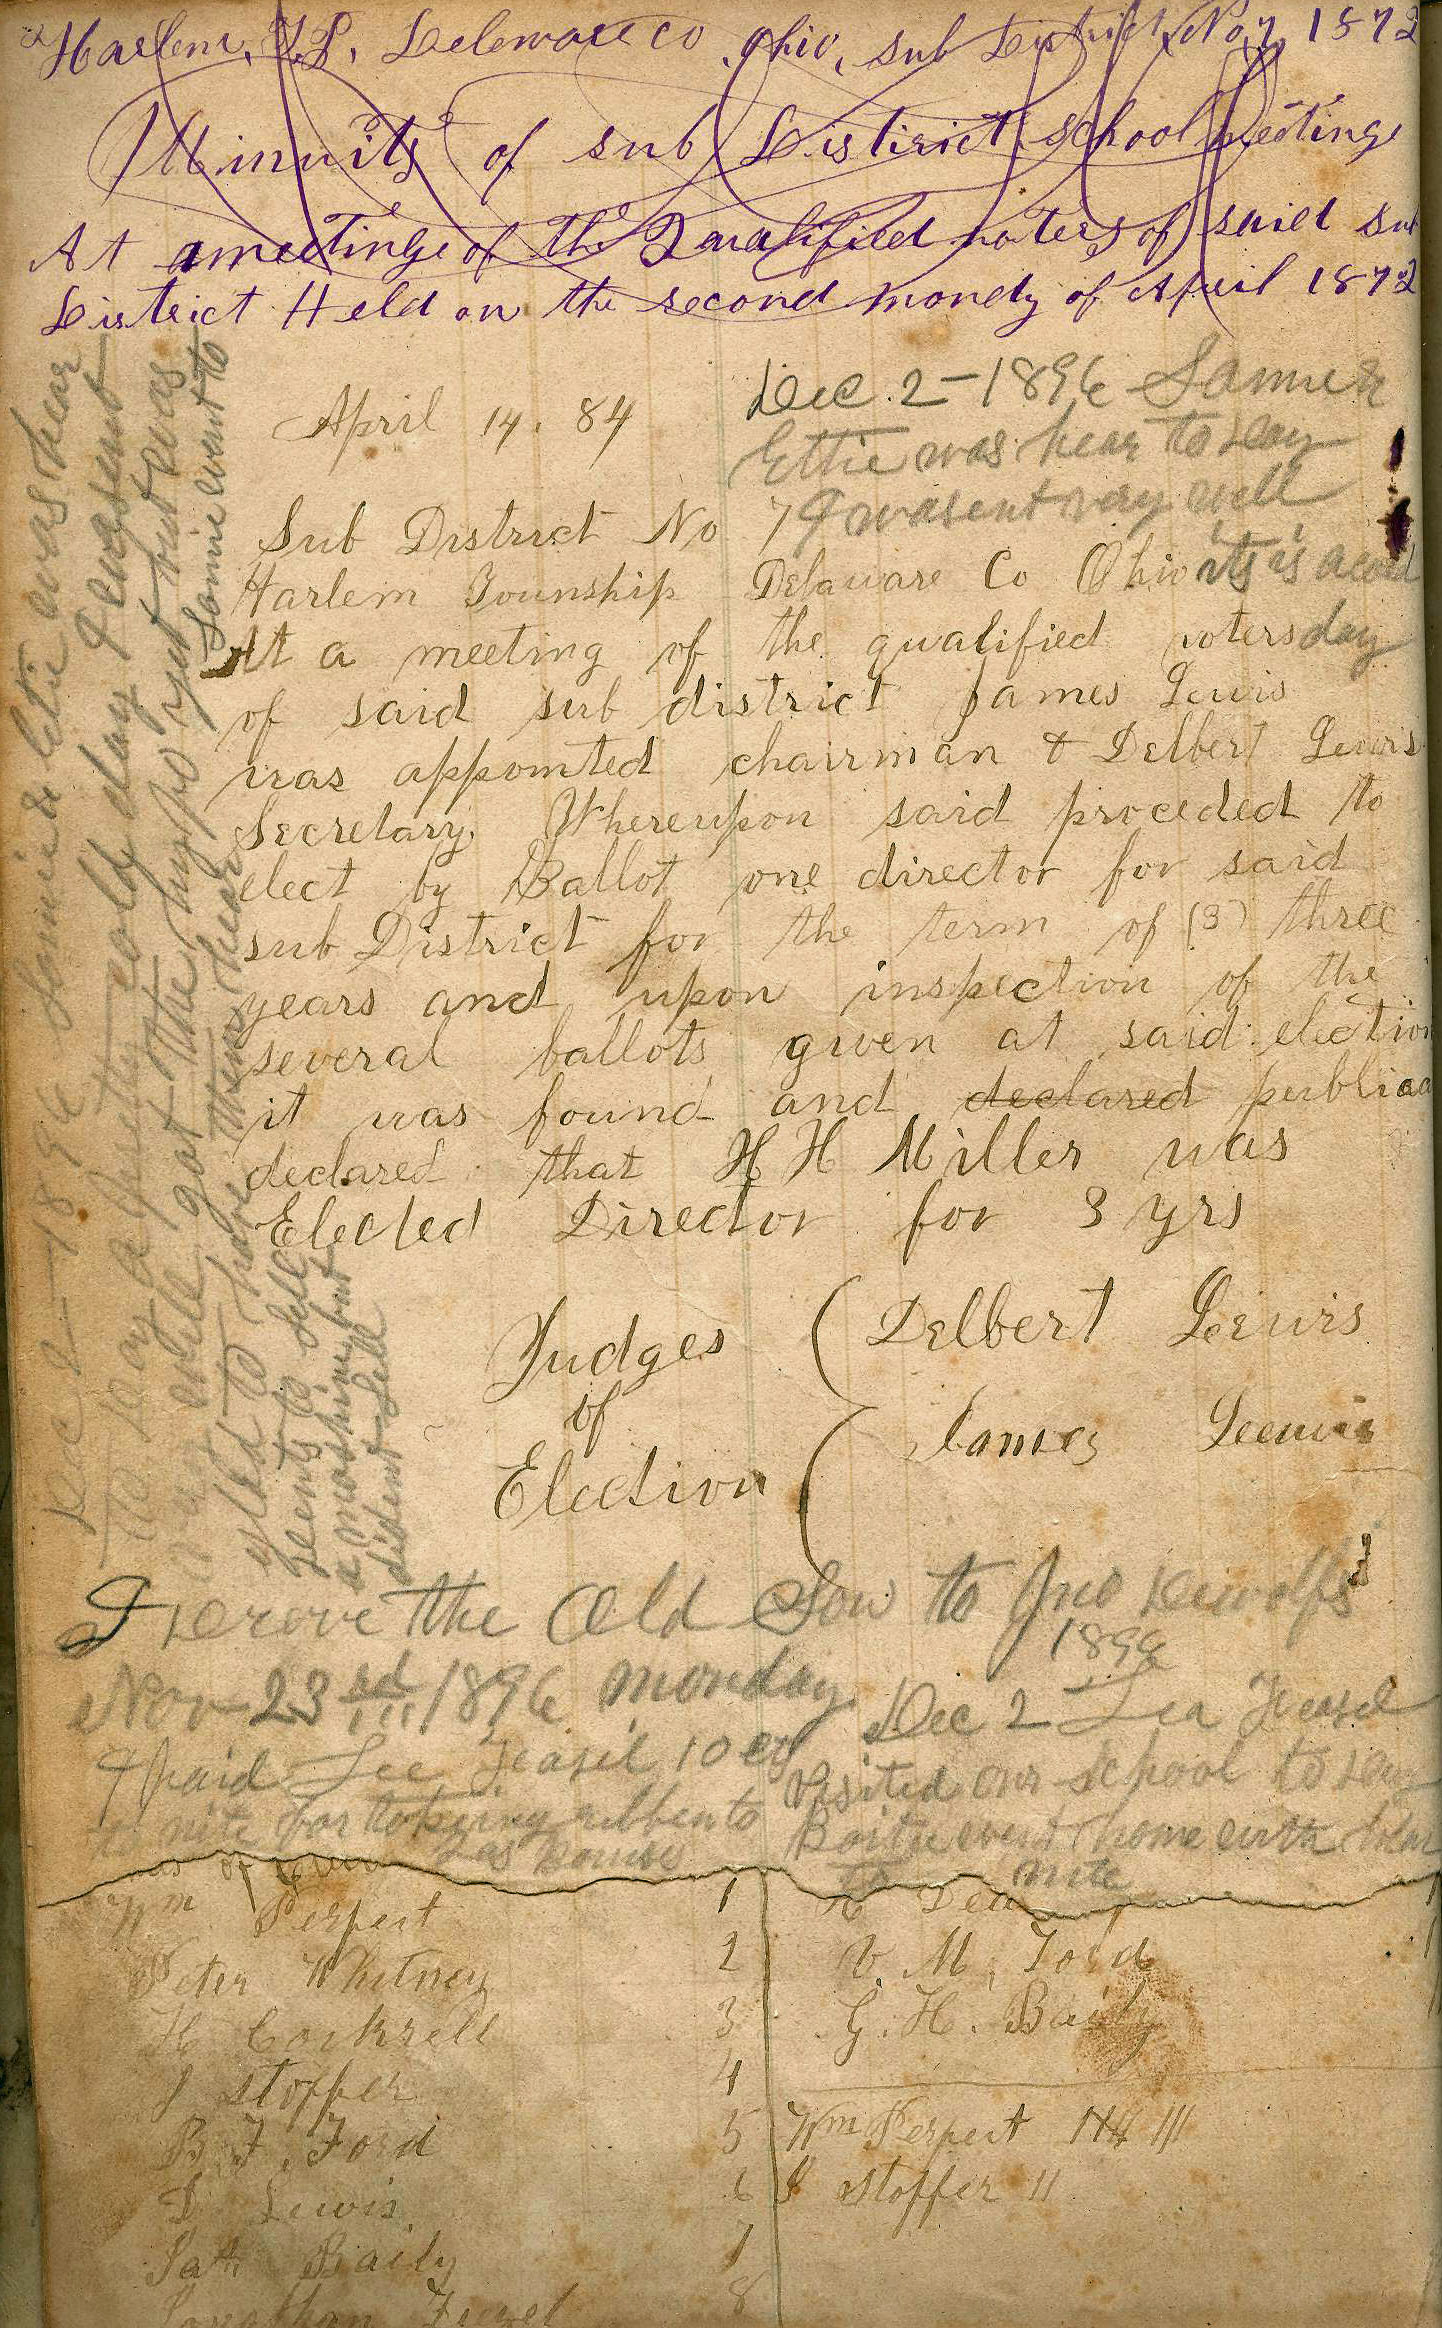 Harlem, T.P. Deleware co Ohio, sub District No 7, 1872
Minuits of sub Distirict school meetinge
At a meetinge of the Qualified voters of said sub
District Held on the second mondy of April 1872
April 14. 84
Dec. 2 - 1896 Samuel
Ettie was hear to day
I wasent very well
its is a cold
day
Sub District No 7
Harlem Township Delaware Co Ohio
At a meeting of the qualified voters
of said sub district James Lewis
was appointed chairman & Delbert Lewis
Secretary. Whereupon said proceded to
elect by Ballot one director for said
sub District for the term of (3) three
years and upon inspection of the
several ballots given at said election
it was found and declared
declared that H H Miller was
Elected Director for 3 yrs
Judges
of
Election
Delbert Lewis
James Leewis
Dec 2 - 1896 was hear
to day a prity cold day I wasent
very while got the hypo yet but was
glad to have them hear
Sammie went to
a mashine but
dident sell
I drove the Old Sow to Jno Dewolfs
Nov 23rd 1896 monday
I paid Lee Teasel 10 cts
to nite for
1896
Dec 2 Lea Teasel
Visited our school to day
went home with
to nite
Wm Perfect 1
Peter Whitney 2
H Cockrell 3
J Stoffer 4
B F. Ford 5
D Lewis 6
Baily 7
Jonathan 8
V. M. Ford
G. H. Baily
Wm Perfect
J Stoffer II